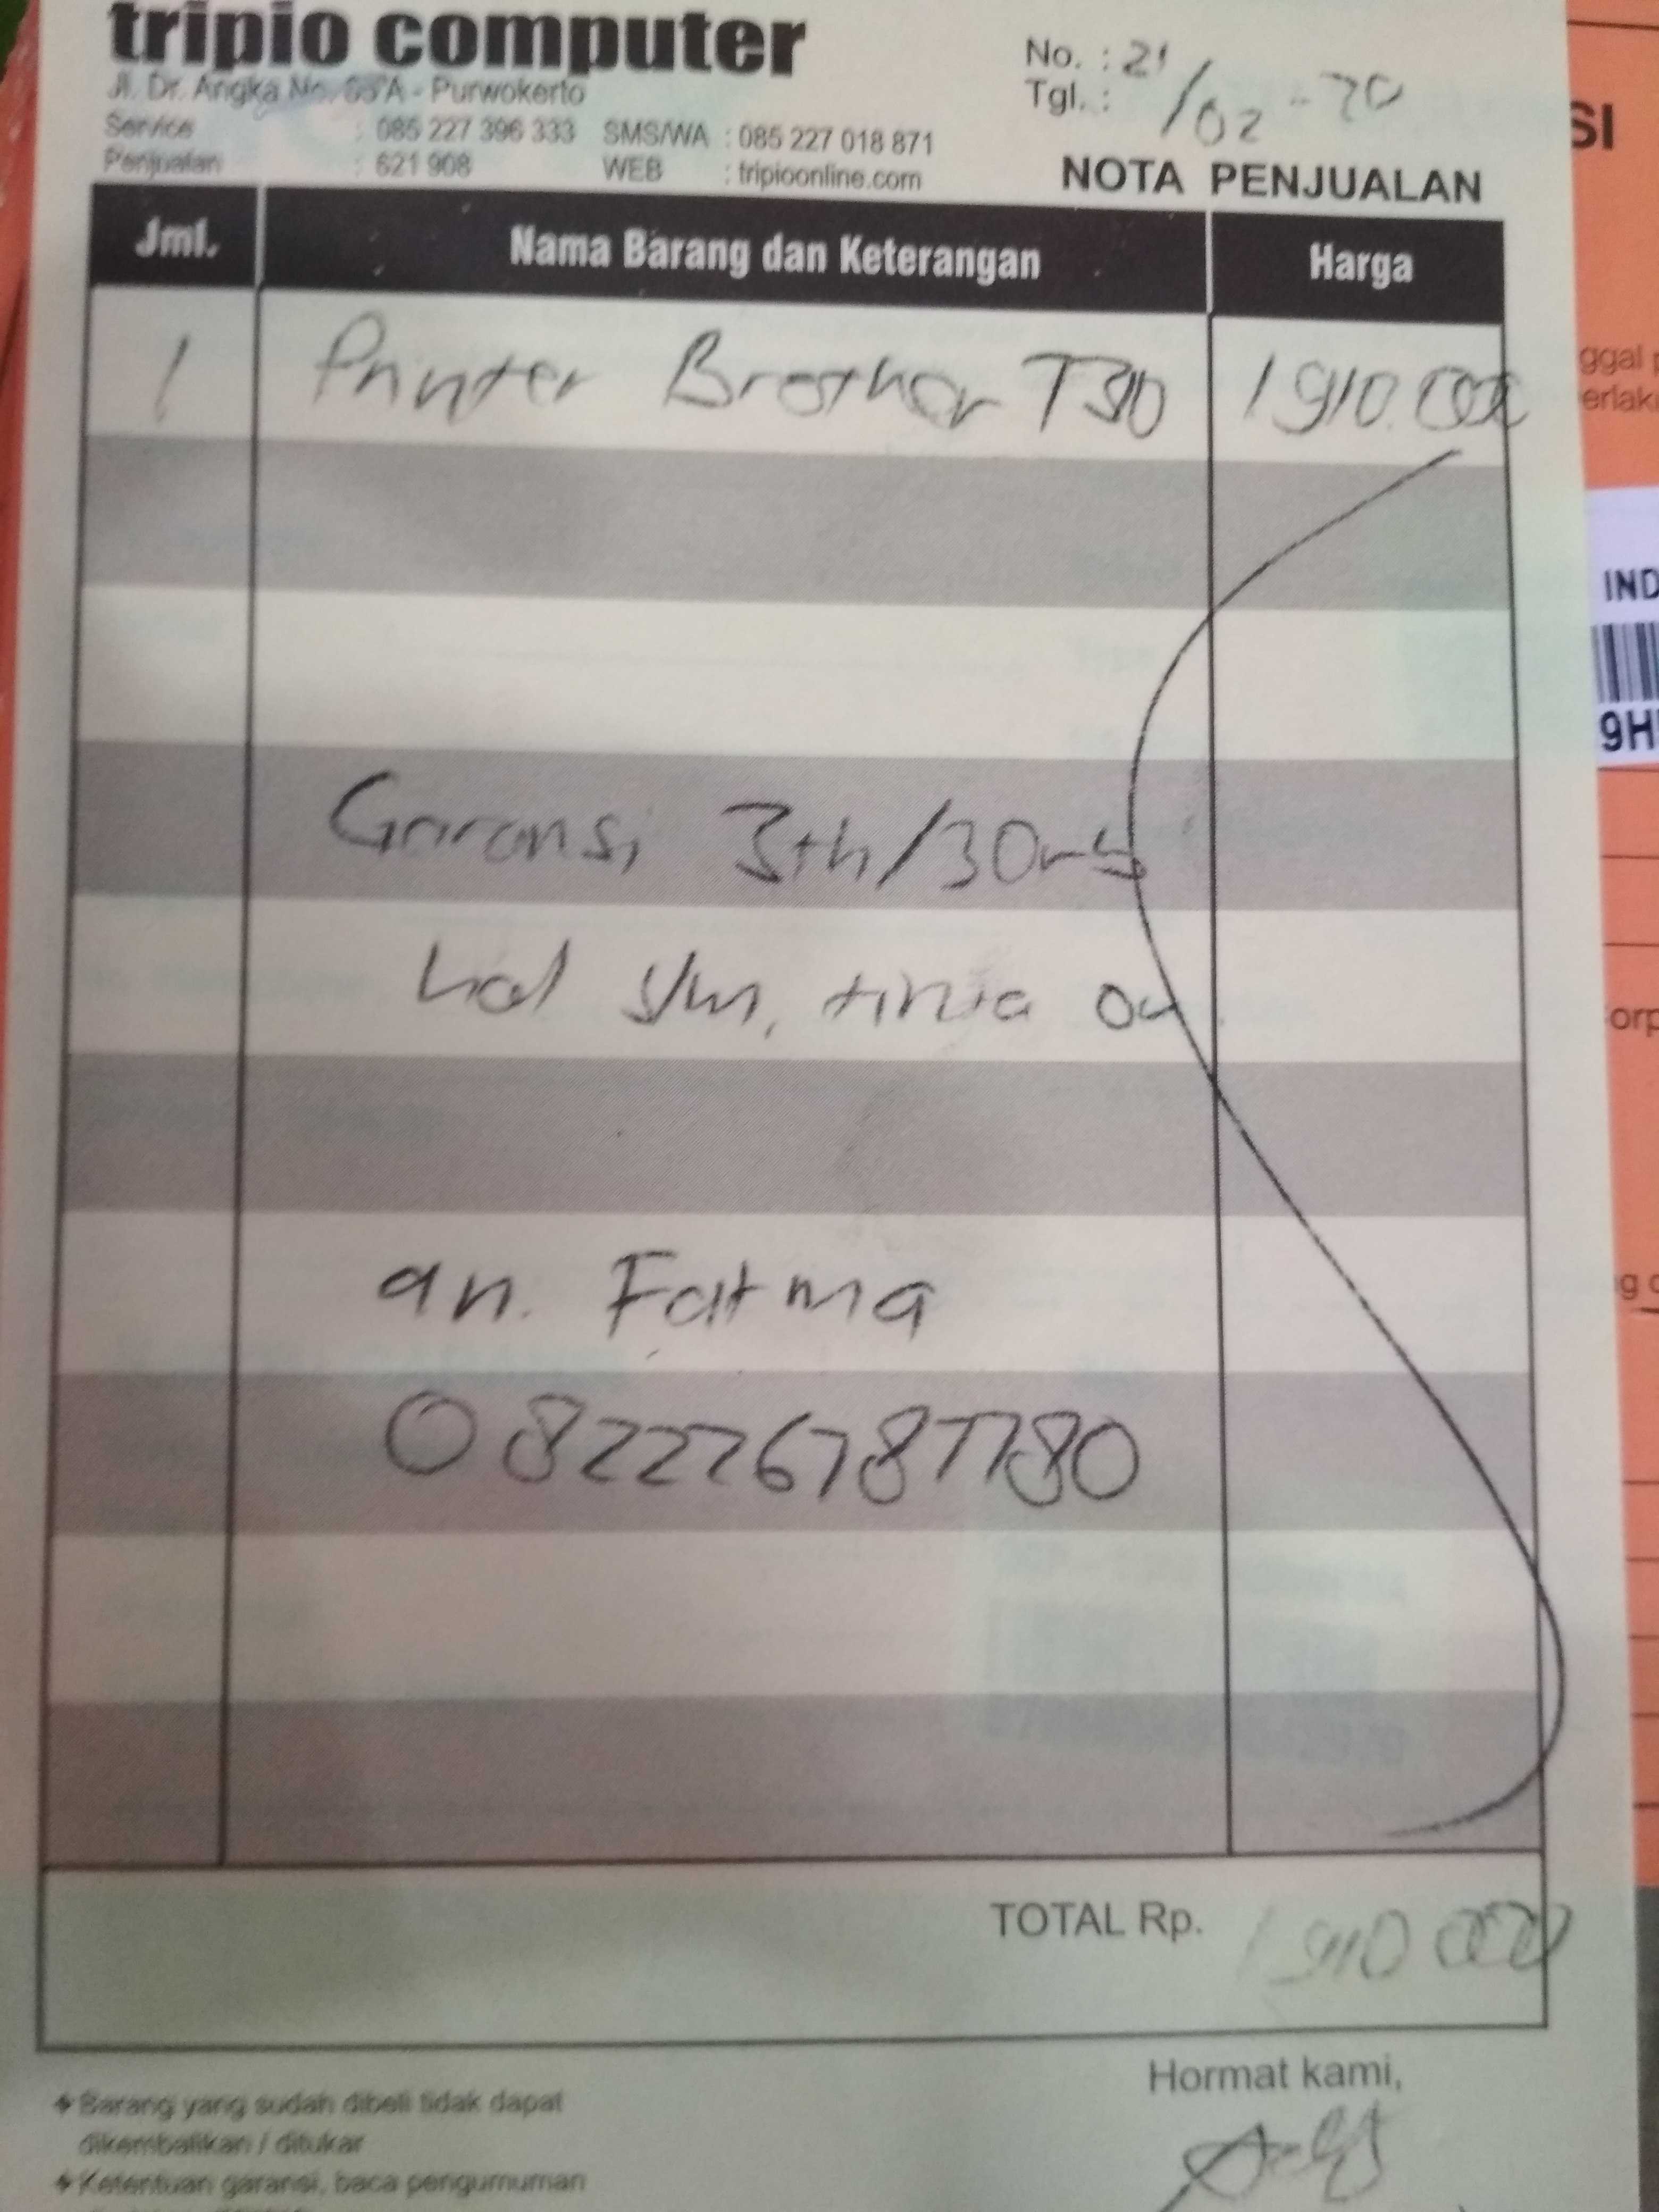 tripio computer
Jl. Dr. Angka No. 63 A - Purwokerto
Service : 085 227 396 333 SMS/WA : 085 227 018 871
Penjualan : 621 908 WEB : tripioonline.com
No. : 21/02-20
Tgl. :
NOTA PENJUALAN
Jml. Nama Barang dan Keterangan Harga
1 Printer Brother T310 1910.000
Garansi 3th/30rb
hal
an. Fatma
TOTAL Rp. 1910 000
Hormat kami,
Barang yang sudah dibeli tidak dapat
dikembalikan / ditukar
Ketentuan garansi, baca pengumuman
SI
ggal
erlaku
IND
9H
orp
g